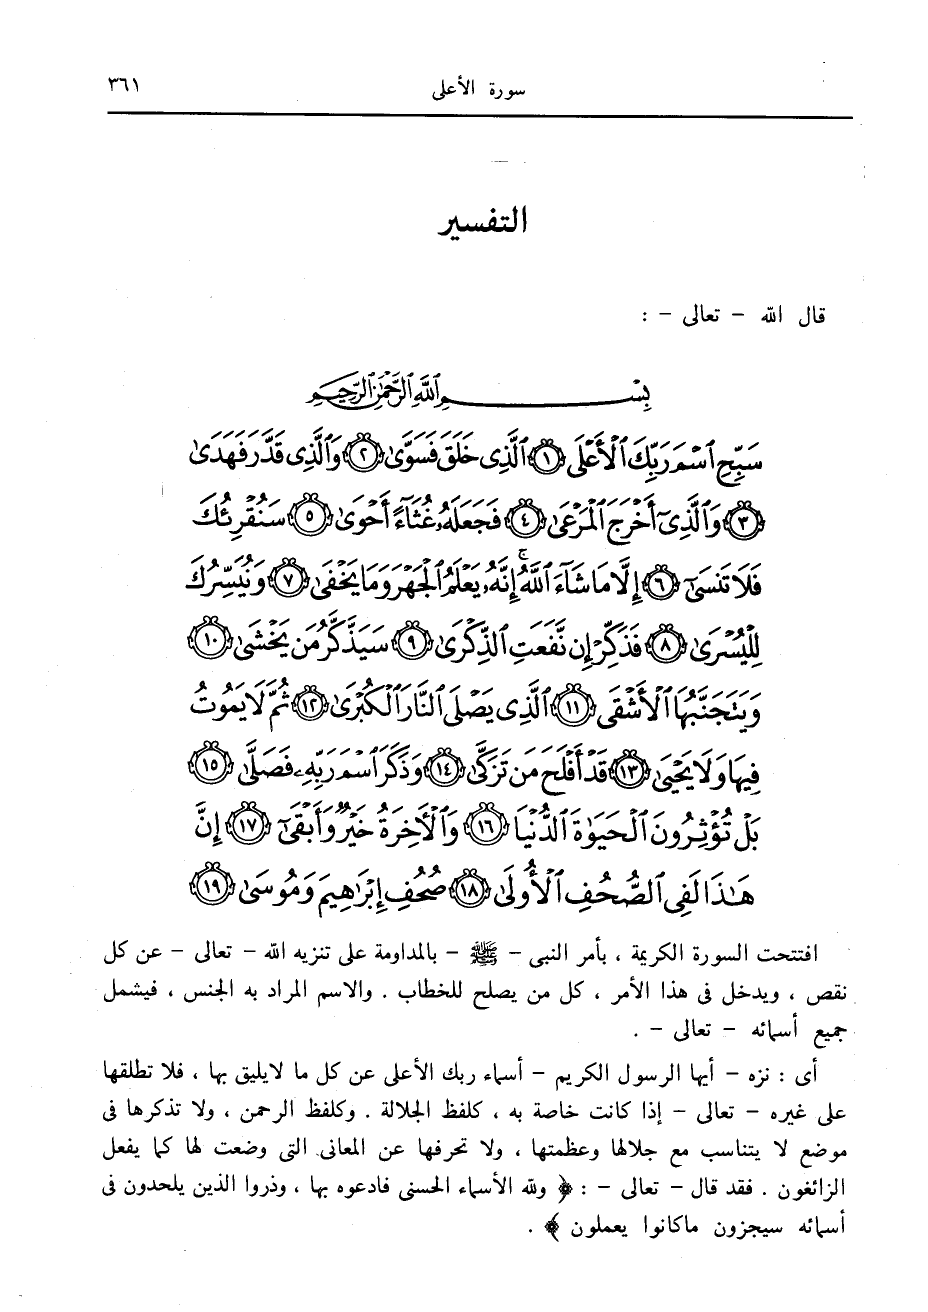 سورة الأعلى ٣٦١
التفسير
قال الله - تعالى - :
بِسْمِ اللَّهِ الرَّحْمَٰنِ الرَّحِيمِ
سَبِّحِ ٱسْمَ رَبِّكَ ٱلْأَعْلَى ١ ٱلَّذِى خَلَقَ فَسَوَّىٰ ٢ وَٱلَّذِى قَدَّرَ فَهَدَىٰ
٣ وَٱلَّذِىٓ أَخْرَجَ ٱلْمَرْعَىٰ ٤ فَجَعَلَهُۥ غُثَآءً أَحْوَىٰ ٥ سَنُقْرِئُكَ
فَلَا تَنسَىٰٓ ٦ إِلَّا مَا شَآءَ ٱللَّهُ ۚ إِنَّهُۥ يَعْلَمُ ٱلْجَهْرَ وَمَا يَخْفَىٰ ٧ وَنُيَسِّرُكَ
لِلْيُسْرَىٰ ٨ فَذَكِّرْ إِن نَّفَعَتِ ٱلذِّكْرَىٰ ٩ سَيَذَّكَّرُ مَن يَخْشَىٰ ١٠
وَيَتَجَنَّبُهَا ٱلْأَشْقَى ١١ ٱلَّذِى يَصْلَى ٱلنَّارَ ٱلْكُبْرَىٰ ١٢ ثُمَّ لَا يَمُوتُ
فِيهَا وَلَا يَحْيَىٰ ١٣ قَدْ أَفْلَحَ مَن تَزَكَّىٰ ١٤ وَذَكَرَ ٱسْمَ رَبِّهِۦ فَصَلَّىٰ ١٥
بَلْ تُؤْثِرُونَ ٱلْحَيَوٰةَ ٱلدُّنْيَا ١٦ وَٱلْءَاخِرَةُ خَيْرٌ وَأَبْقَىٰٓ ١٧ إِنَّ
هَٰذَا لَفِى ٱلصُّحُفِ ٱلْأُولَىٰ ١٨ صُحُفِ إِبْرَٰهِيمَ وَمُوسَىٰ ١٩
افتتحت السورة الكريمة ، بأمر النبى - ﷺ - بالمداومة على تنزيه الله - تعالى - عن كل
نقص ، ويدخل فى هذا الأمر ، كل من يصلح للخطاب . والاسم المراد به الجنس ، فيشمل
جميع أسمائه - تعالى - .
أى : نزه - أيها الرسول الكريم - أسماء ربك الأعلى عن كل ما لايليق بها ، فلا تطلقها
على غيره - تعالى - إذا كانت خاصة به ، كلفظ الجلالة . وكلفظ الرحمن ، ولا تذكرها فى
موضع لا يتناسب مع جلالها وعظمتها ، ولا تحرفها عن المعانى التى وضعت لها كما يفعل
الزائغون . فقد قال - تعالى - : ﴿ ولله الأسماء الحسنى فادعوه بها ، وذروا الذين يلحدون فى
أسمائه سيجزون ماكانوا يعملون ﴾ .